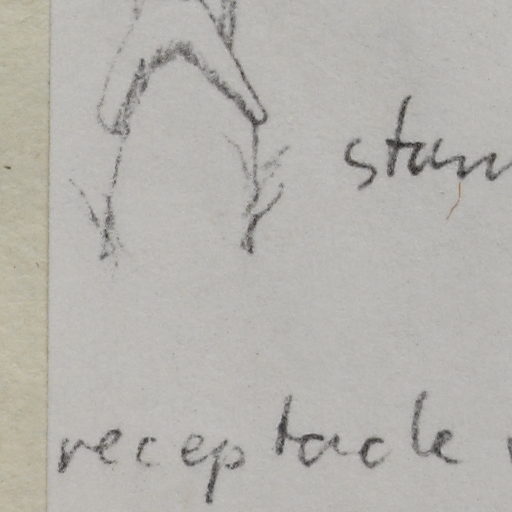 stam
receptacle